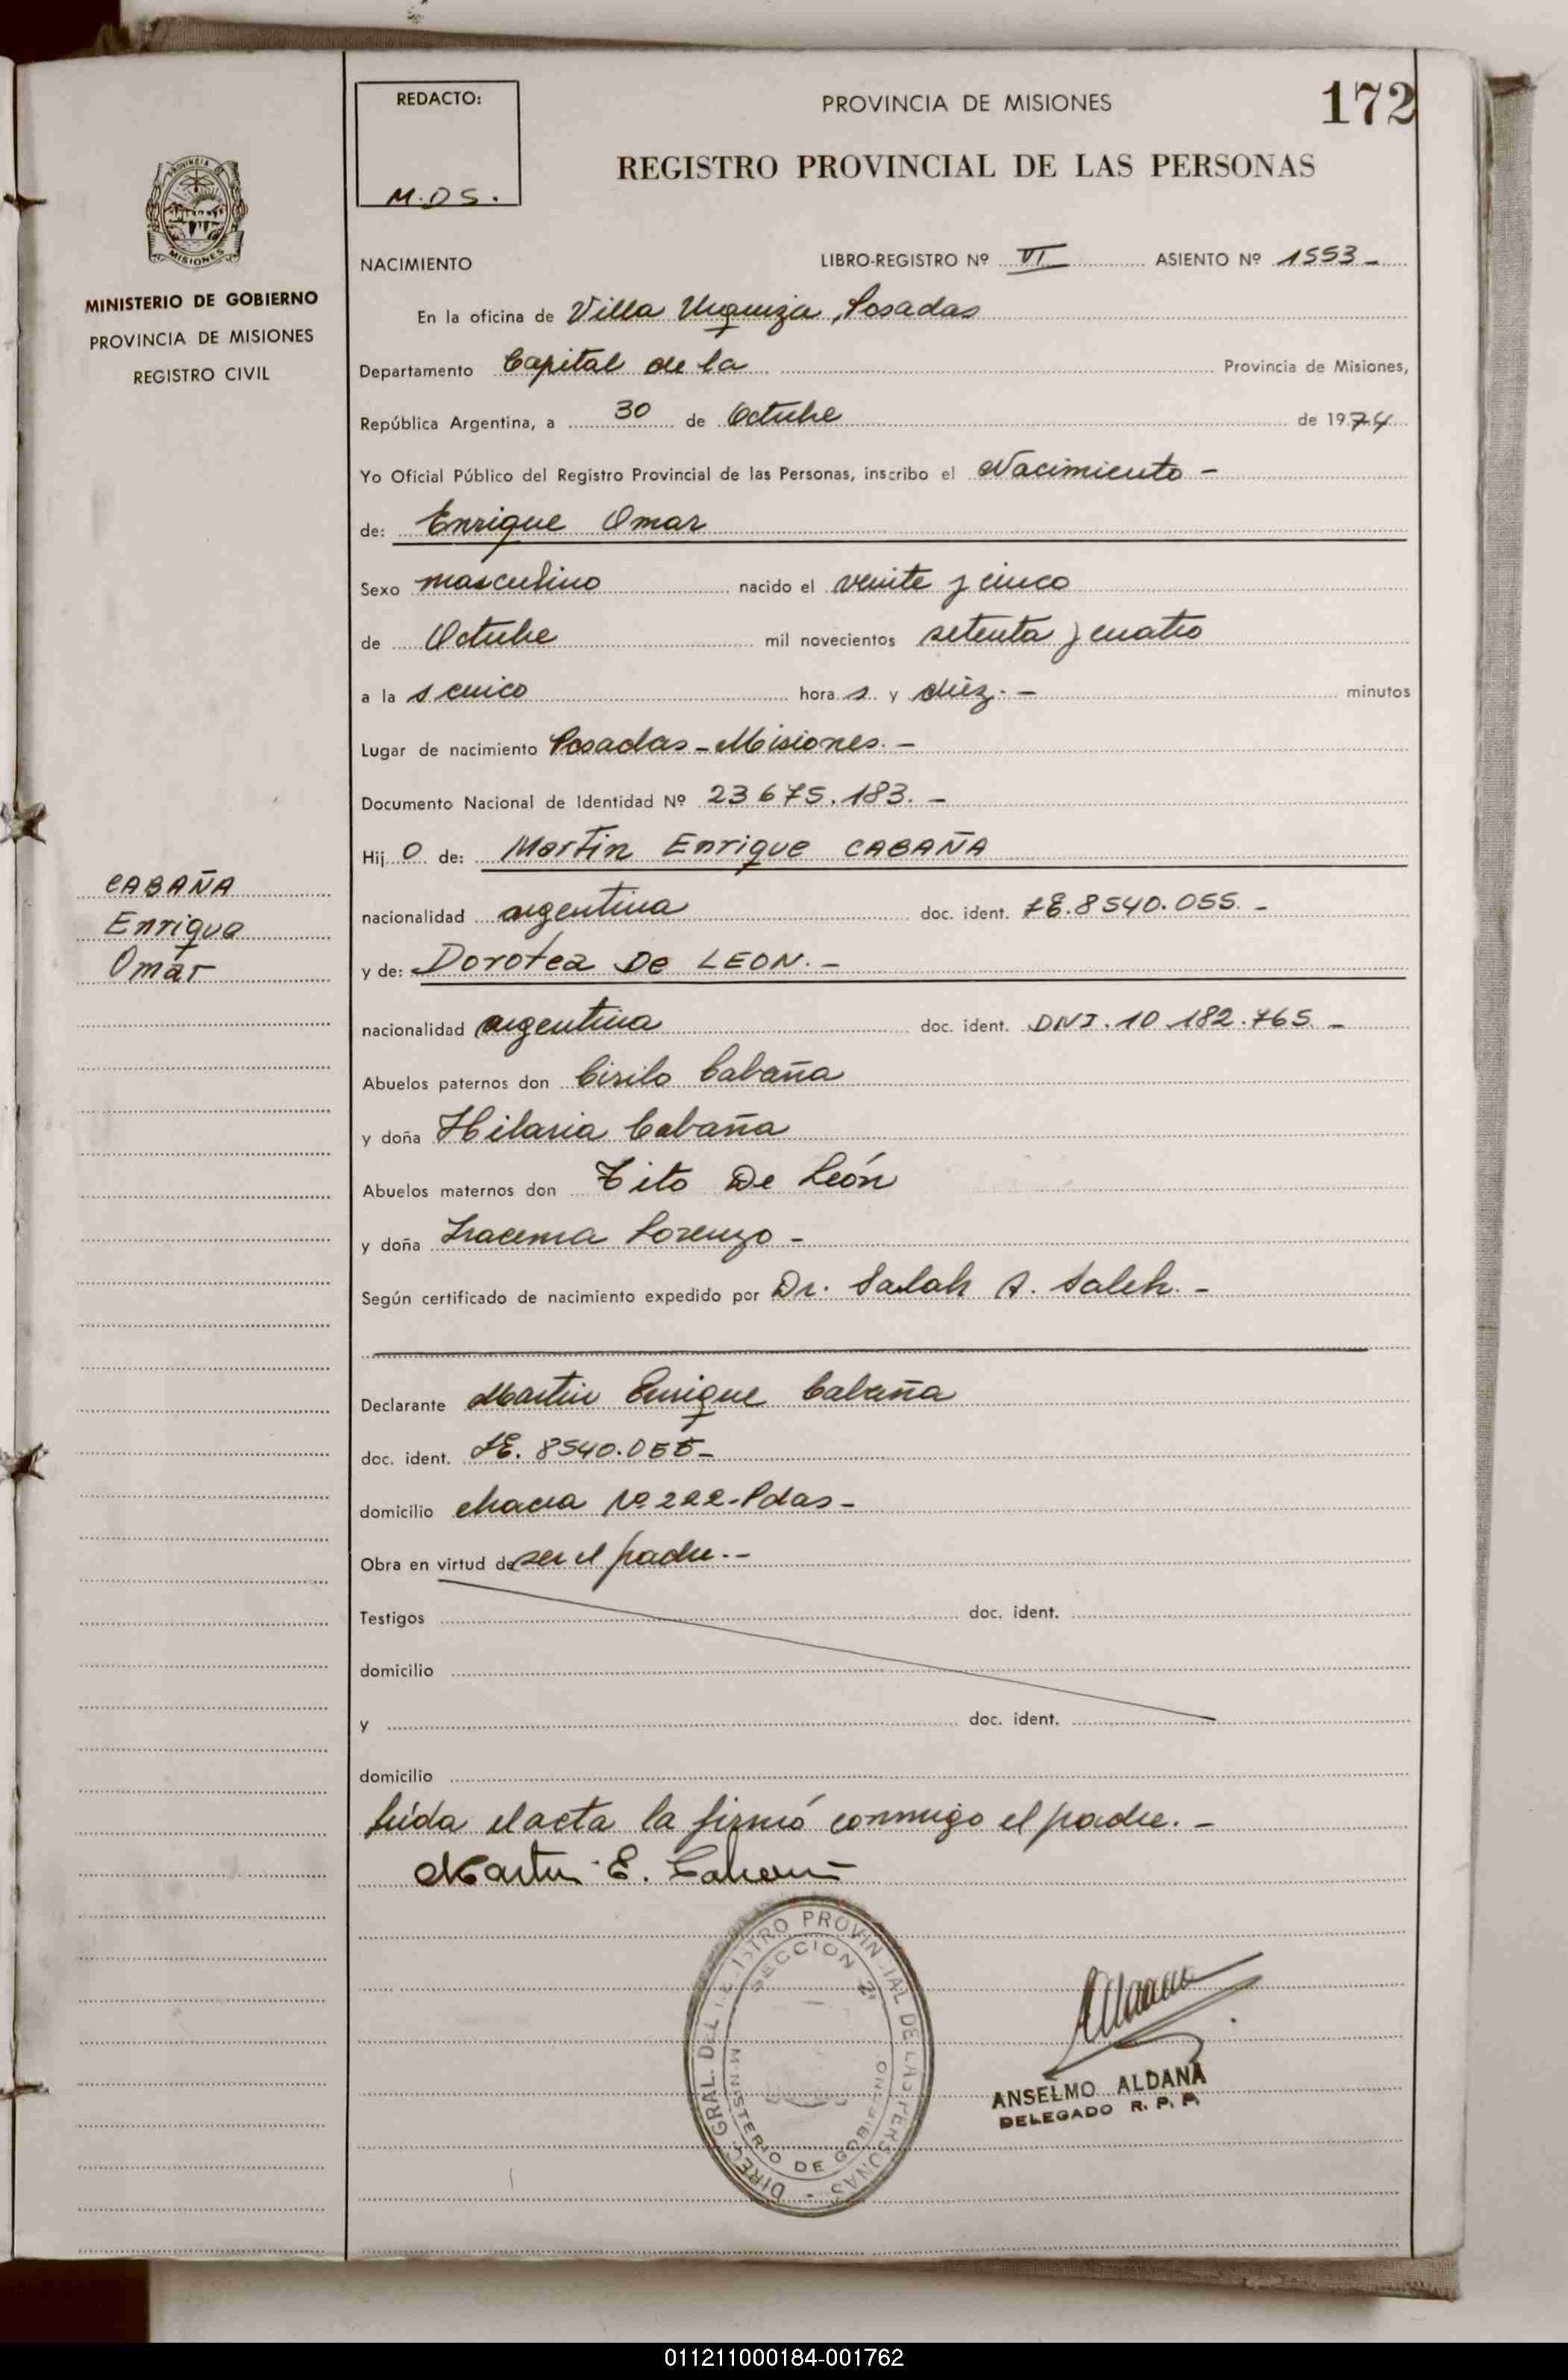 REDACTO:
M.DS.
PROVINCIA DE MISIONES
172
REGISTRO PROVINCIAL DE LAS PERSONAS
PROVINCIA
MISIONES
MINISTERIO DE GOBIERNO
PROVINCIA DE MISIONES
REGISTRO CIVIL
NACIMIENTO LIBRO-REGISTRO Nº VI ASIENTO Nº 1553-
En la oficina de Villa Urquiza, Posadas
Departamento Capital de la Provincia de Misiones,
República Argentina, a 30 de Octubre de 1974
Yo Oficial Público del Registro Provincial de las Personas, inscribo el Nacimiento -
de: Enrique Omar
Sexo masculino nacido el veinte y cinco
de Octubre mil novecientos setenta y cuatro
a la s cinco hora s y diéz.- minutos
Lugar de nacimiento Posadas-Misiones.-
Documento Nacional de Identidad Nº 23675.183.-
Hij o de: Martin Enrique CABAÑA
CABAÑA
Enrique
Omar
nacionalidad argentina doc. ident. LE.8540.055.-
y de: Dorotea De LEON.-
nacionalidad argentina doc. ident. DNI.10.182.765.-
Abuelos paternos don Cirilo Cabaña
y doña Hilaria Cabaña
Abuelos maternos don Tito De León
y doña Iracema Lorenzo -
Según certificado de nacimiento expedido por Dr. Salah A. Saleh.-
Declarante Martin Enrique Cabaña
doc. ident. LE. 8540.055-
domicilio chacra Nº 222-Pdas-
Obra en virtud de ser el padre.-
Testigos doc. ident.
domicilio
y doc. ident.
domicilio
Leida el acta la firmó conmigo el padre.-
Martin E. Cabaña
DIREC. GRAL. DEL REGISTRO PROVINCIAL DE LAS PERSONAS
SECCION 2ª
MINISTERIO DE GOBIERNO
ANSELMO ALDANA
DELEGADO R. P. P.
011211000184-001762